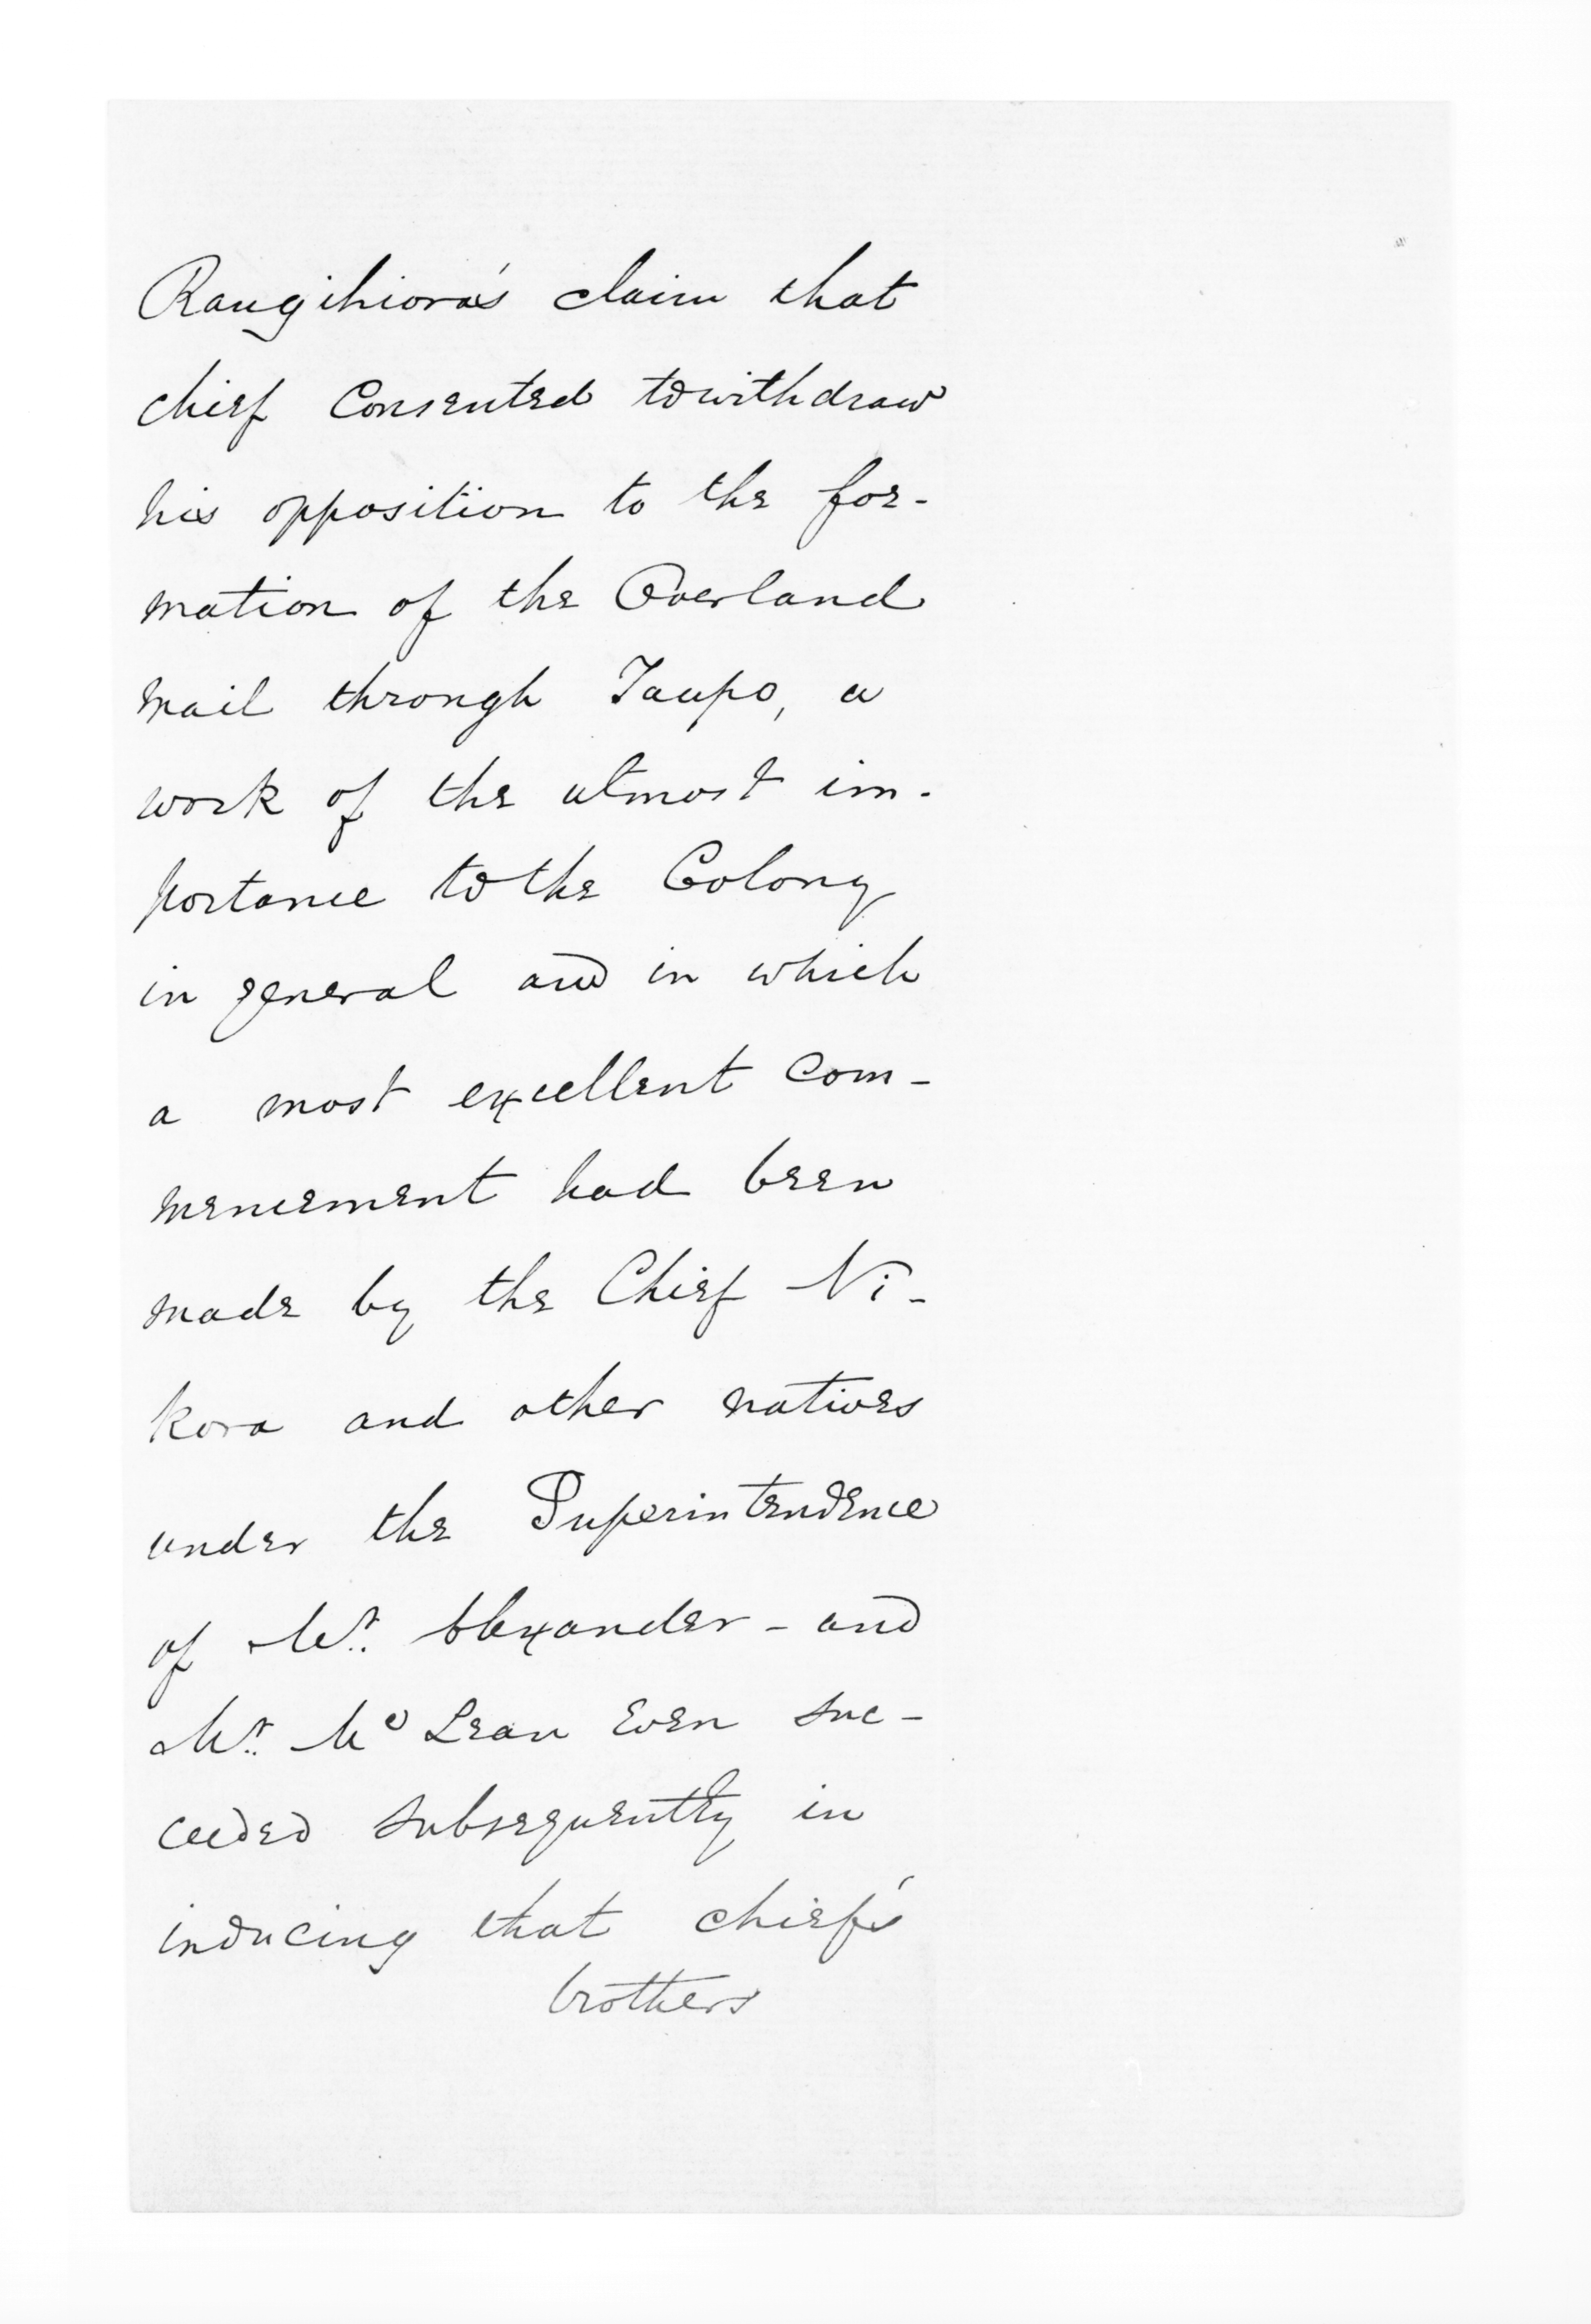 Rangihiora's claim that
chief Consented to withdraw
his opposition to the for-
mation of the Overland
Mail through Taupo, a
work of the utmost im-
portance to the Colony
in general and in which
a most excellent com-
mencement had been
made by the Chief Ni-
kora and other natives
under the Superintendence
of Mr. Alexander - and
Mr. Mc Lean Even suc-
ceeded subsequently in
inducing that chief's
brothers